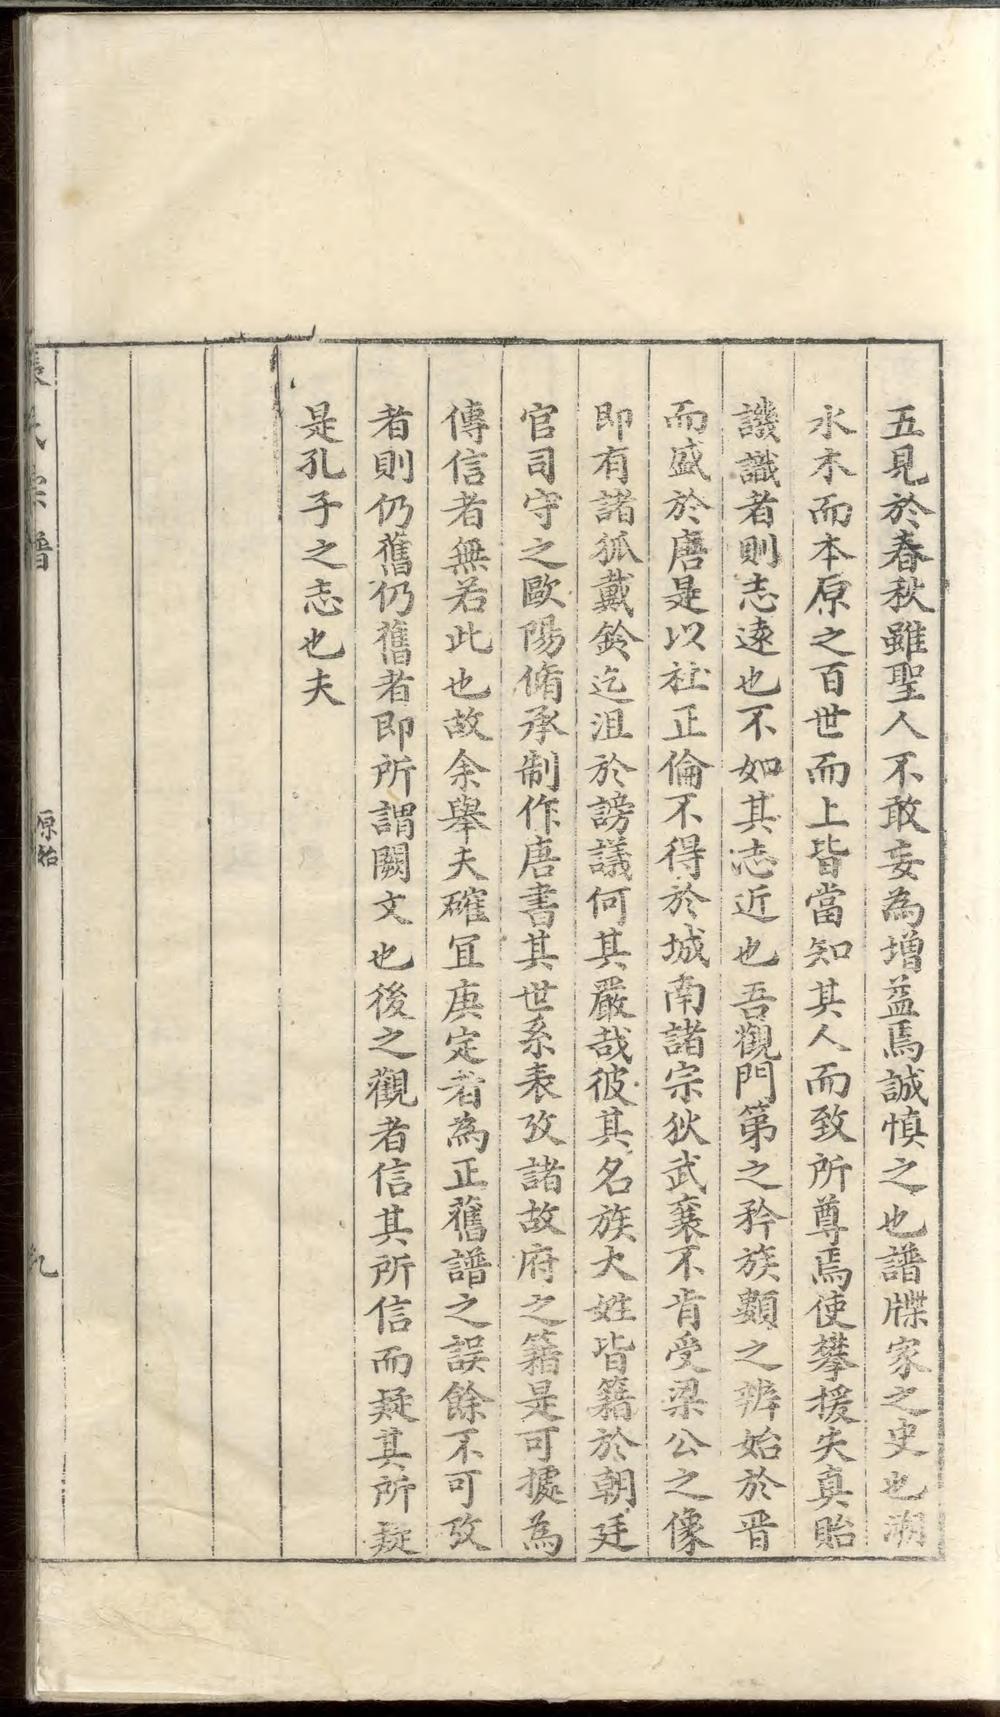 五見於春秋雖聖人不敢妄為增益焉誠慎之也譜牒家之史也溯
水木而本原之百世而上皆當知其人而致所尊焉使攀援失真貽
譏識者則志遠也不如其志近也吾觀門第之矜族類之辨始於晋
而盛於唐是以杜正倫不得於城南諸宗狄武襄不肯受梁公之像
即有諸狐戴鈴迄沮於謗議何其嚴哉彼其名族大姓皆籍於朝廷
官司守之歐陽脩承制作唐書其世系表攷諸故府之籍是可據為
傳信者無若此也故余舉夫確宜庚定者為正舊譜之誤餘不可攷
者則仍舊仍舊者即所謂闕文也後之觀者信其所信而疑其所疑
是孔子之志也夫
張氏宗譜
原始
九